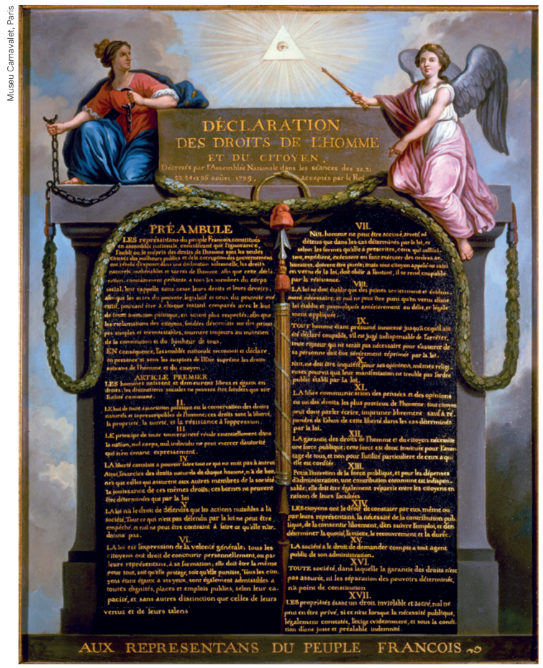 Museu Carnavalet, Paris
DÉCLARATION
DES DROITS DE L'HOMME
ET DU CITOYEN,
Décrétés par l'Assemblée Nationale dans les séances des 20, 21
23, 24 et 26 août, 1789, acceptés par le Roi
PRÉAMBULE
LES représentans du peuple François, constitués
en assemblée nationale, considérant que l'ignorance,
l'oubli ou le mépris des droits de l'homme sont les seules
causes des malheurs publics et de la corruption des gouvernemens
ont résolu d'exposer dans une déclaration solemnelle, les droits
naturels, inaliénables et sacrés de l'homme: afin que cette décla-
ration, constamment présente à tous les membres du corps
social, leur rappelle sans cesse leurs droits et leurs devoirs;
afin que les actes du pouvoir législatif et ceux du pouvoir exé-
cutif, pouvant être à chaque instant comparés avec le but
de toute institution politique, en soient plus respectés; afin que
les réclamations des citoyens, fondées désormais sur des princi-
pes simples et incontestables, tournent toujours au maintien
de la constitution et du bonheur de tous.
EN conséquence, l'assemblée nationale reconnoit et déclare,
en présence et sous les auspices de l'Etre suprême les droits
suivans de l'homme et du citoyen.
ARTICLE PREMIER.
LES hommes naissent et demeurent libres et égaux en
droits, les distinctions sociales ne peuvent être fondées que sur
l'utilité commune.
II.
LE but de toute association politique est la conservation des droits
naturels et imprescriptibles de l'homme; ces droits sont la liberté,
la propriété, la sureté, et la résistance à l'oppression.
III.
LE principe de toute souveraineté réside essentiellement dans
la nation, nul corps, nul individu ne peut exercer d'autorité
qui n'en émane expressément.
IV.
LA liberté consiste à pouvoir faire tout ce qui ne nuit pas à autrui
Ainsi, l'exercice des droits naturels de chaque homme, n'a de bor-
nes que celles qui assurent aux autres membres de la société
la jouissance de ces mêmes droits; ces bornes ne peuvent
être déterminées que par la loi
V.
LA loi n'a le droit de défendre que les actions nuisibles à la
société. Tout ce qui n'est pas défendu par la loi ne peut être
empêché, et nul ne peut être contraint à faire ce qu'elle n'or-
donne pas.
VI.
LA loi est l'expression de la volonté générale; tous les
citoyens ont droit de concourir personnellement, ou par
leurs représentans, à sa formation; elle doit être la même
pour tous, soit qu'elle protege, soit qu'elle punisse. Tous les cito-
yens étant égaux à ses yeux, sont également admissibles à
toutes dignités, places et emplois publics, selon leur ca-
pacité, et sans autres distinction que celles de leurs
vertus et de leurs talens
VII.
NUL homme ne peut être accusé, arrêté ni
détenu que dans les cas déterminés par la loi, et
selon les formes qu'elle a prescrites, ceux qui sollici-
tent, expédient, exécutent ou font exécuter des ordres ar-
bitraires, doivent être punis; mais tout citoyen appelé ou saisi
en vertu de la loi, doit obéir à l'instant, il se rend coupable
par la résistance.
VIII.
LA loi ne doit établir que des peines strictement et évidem-
ment nécessaire, et nul ne peut être puni qu'en vertu d'une
loi établie et promulguée antérieurement au délit, et légale-
ment appliquée.
IX.
TOUT homme étant présumé innocent jusqu'à ce qu'il ait
été déclaré coupable, s'il est jugé indispensable de l'arrêter,
toute rigueur qui ne serait pas nécessaire pour s'assurer de
sa personne doit être sévèrement réprimée par la loi.
X.
NUL ne doit être inquiété pour ses opinions, mêmes reli-
gieuses pourvu que leur manifestation ne trouble pas l'ordre
public établi par la loi.
XI.
LA libre communication des pensées et des opinions
est un des droits les plus précieux de l'homme: tout citoyen
peut donc parler, écrire, imprimer librement: sauf à ré-
pondre de l'abus de cette liberté dans les cas déterminés
par la loi.
XII.
LA garantie des droits de l'homme et du citoyen nécessite
une force publique: cette force est donc instituée pour l'avan-
tage de tous, et non pour l'utilité particuliere de ceux à qui
elle est confiée.
XIII.
Pour l'entretien de la force publique, et pour les dépenses
d'administration, une contribution commune est indispen-
sable; elle doit être également répartie entre les citoyens en
raison de leurs facultées
XIV.
LES citoyens ont le droit de constater par eux même ou
par leurs représentans, la nécessité de la contribution pub-
lique, de la consentir librement, d'en suivre l'emploi, et d'en
déterminer la quotité, l'assiette, le recouvrement et la durée.
XV.
LA société a le droit de demander compte à tout agent
public de son administration.
XVI.
TOUTE société, dans laquelle la garantie des droits n'est
pas assurée, ni la séparation des pouvoirs déterminée,
n'a point de constitution
XVII.
LES propriétés étant un droit inviolable et sacré, nul ne
peut en être privé, si ce n'est lorsque la nécessité publique,
légalement constatée, l'exige évidemment, et sous la condi-
tion d'une juste et préalable indemnité.
AUX REPRESENTANS DU PEUPLE FRANCOIS